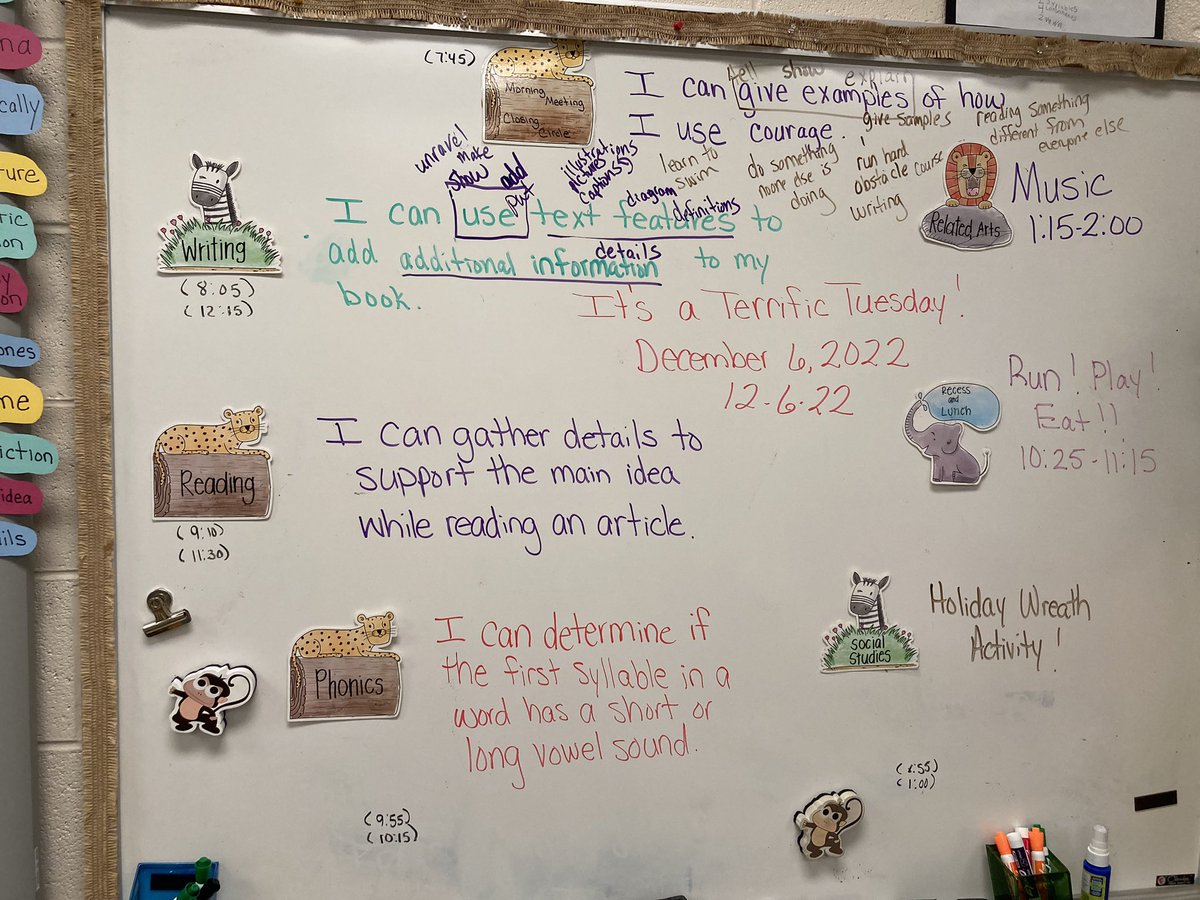 (7:45)
Morning
Meeting
Closing
Circle
tell show explain
I can give examples of how
I use courage.
give samples
reading something
different from
everyone else
learn to
swim
do something
noone else is
doing
run hard
obstacle course
writing
Related Arts
Music
1:15-2:00
Writing
(8:05)
(12:15)
unravel
make
show
add
put
illustrations
pictures
captions
diagram
definitions
I can use text features to
details
add additional information to my
book.
It's a Terrific Tuesday!
December 6, 2022
12.6.22
Recess
and
Lunch
Run! Play!
Eat!!
10:25-11:15
Reading
(9:10)
(11:30)
I can gather details to
support the main idea
while reading an article.
Phonics
I can determine if
the first syllable in a
word has a short or
long vowel sound.
(9:55)
(10:15)
Social
Studies
Holiday Wreath
Activity!
(1:00)
na
cally
ture
ric
on
y
on
ones
me
iction
idea
ils